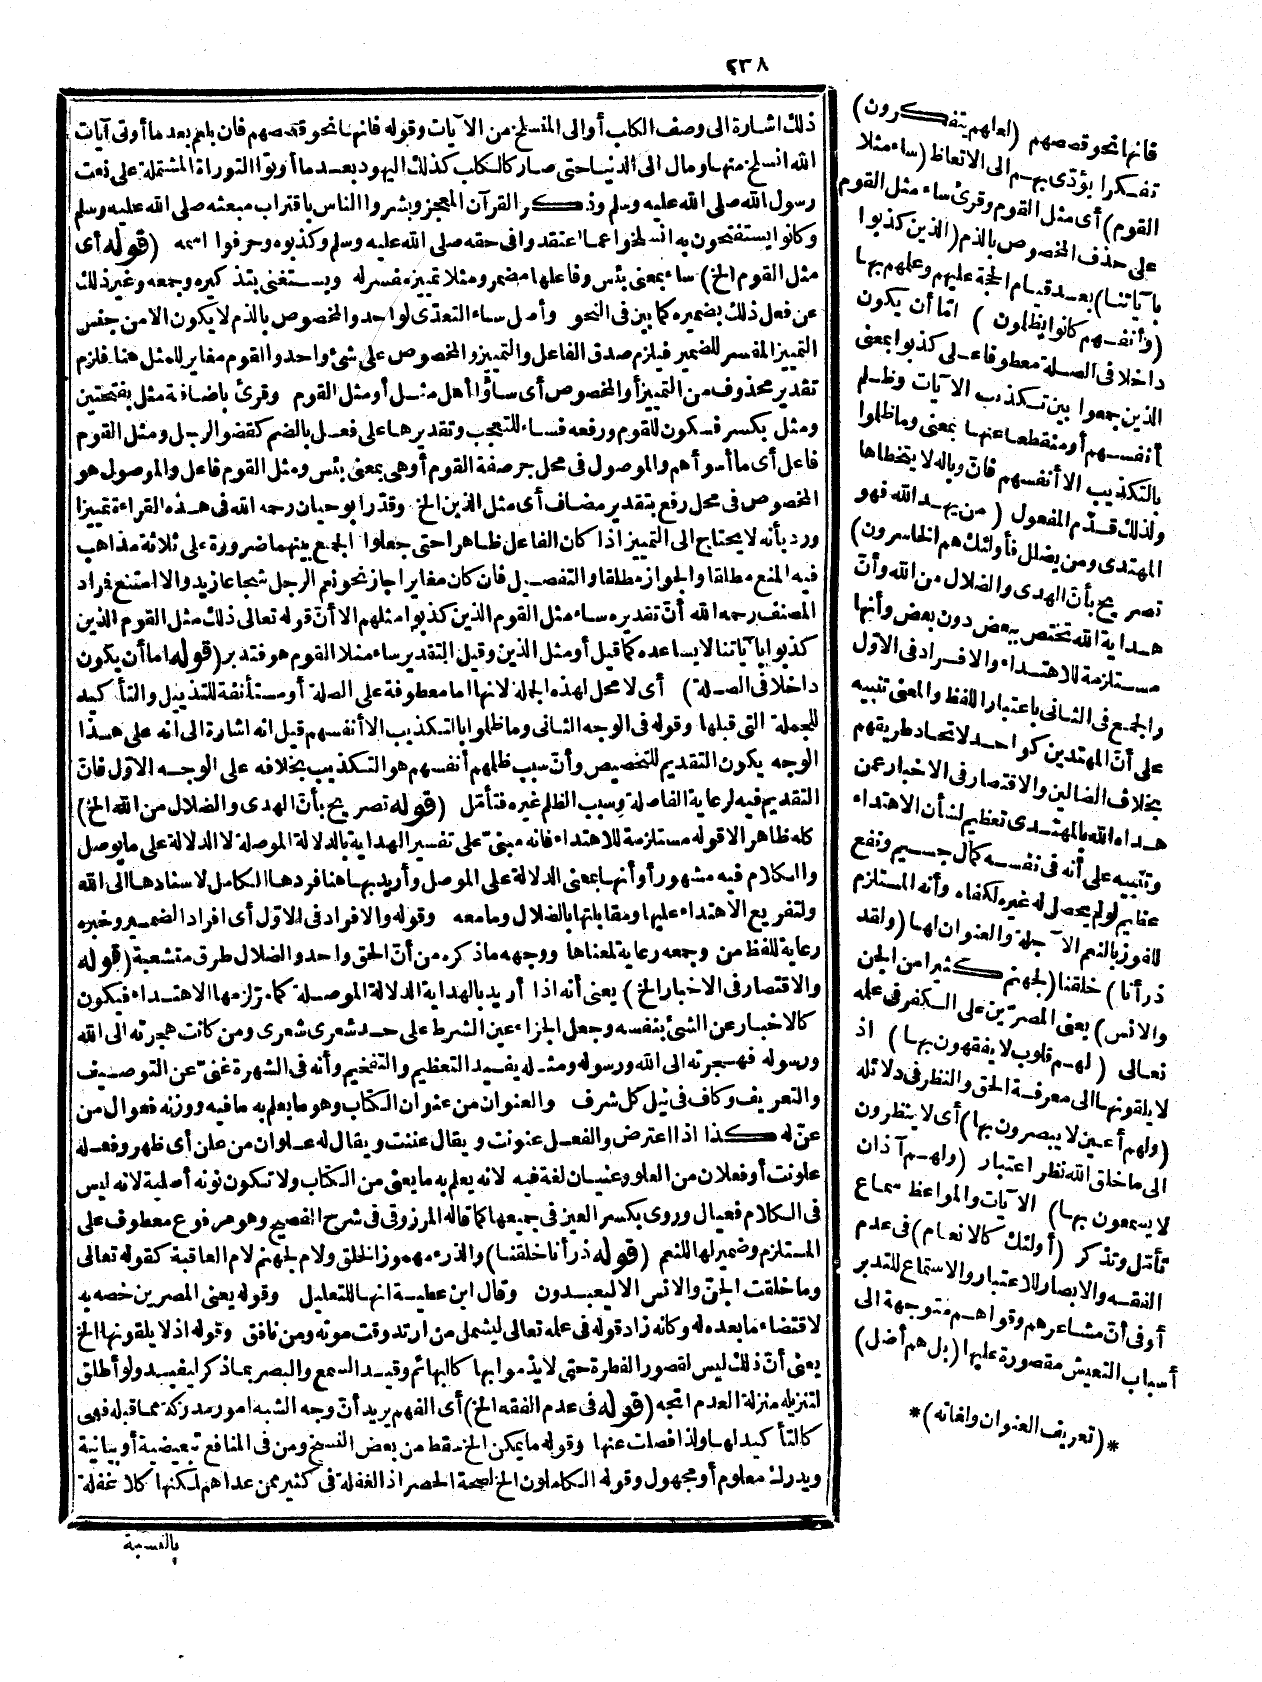 ٢٣٨
ذلك اشارة الى وصف الكلب أو الى المنسلخ من الآيات وقوله فانها نحو قصصهم فان بلعم بعد ما أوتى آيات
الله انسلخ منها ومال الى الدنيا حتى صار كالكلب كذلك اليهود بعد ما أوتوا التوراة المشتملة على نعت
رسول الله صلى الله عليه وسلم وذكر القرآن المعجز وبشروا الناس باقتراب مبعثه صلى الله عليه وسلم
وكانوا يستفتحون به انسلخوا عما اعتقدوا فى حقه صلى الله عليه وسلم وكذبوه وحرفوا اسمه (قوله أى
مثل القوم الخ) ساء بمعنى بئس وفاعلها مضمر ومثلا تمييز مفسر له ويستغنى بتذكيره وجمعه وغير ذلك
عن فعل ذلك بضميره كما بين فى النحو وأصل ساء التعدّى لواحد والمخصوص بالذم لا يكون الا من جنس
التمييز المفسر للضمير فيلزم صدق الفاعل والتمييز والمخصوص على شئ واحد والقوم مغاير للمثل هنا فلزم
تقدير محذوف من التمييز أو المخصوص أى ساؤا أهل مثل أو مثل القوم وقرئ باضافة مثل بفتحتين
ومثل بكسر فسكون للقوم ورفعه فساء للتعجب وتقديرها على فعل بالضم كقضو الرجل ومثل القوم
فاعل أى ما أسوأهم والموصول فى محل جر صفة القوم أو هى بمعنى بئس ومثل القوم فاعل والموصول هو
المخصوص فى محل رفع بتقدير مضاف أى مثل الذين الخ وقدّر أبو حيان رحمه الله فى هذه القراءة تمييزا
ورد بأنه لا يحتاج الى التمييز اذا كان الفاعل ظاهرا حتى جعلوا الجمع بينهما ضرورة على ثلاثة مذاهب
فيه المنع مطلقا والجواز مطلقا والتفصيل فان كان مغايرا جاز نحو نعم الرجل شجاعا زيد والا امتنع فراد
المصنف رحمه الله أنّ تقديره ساء مثل القوم الذين كذبوا مثلهم الا أنّ قوله تعالى ذلك مثل القوم الذين
كذبوا بآياتنا لا يساعده كما قيل أو مثل الذين وقيل التقدير ساء مثلا القوم هو فتدبر (قوله اما أن يكون
داخلا فى الصلة) أى لا محل لهذه الجملة لانها اما معطوفة على الصلة أو مستأنفة للتذييل والتأكيد
للجملة التى قبلها وقوله فى الوجه الثانى وما ظلموا بالتكذيب الا أنفسهم قيل انه اشارة الى انه على هذا
الوجه يكون التقديم للتخصيص وأنّ سبب ظلمهم أنفسهم هو التكذيب بخلافه على الوجه الاوّل فانّ
التقديم فيه لرعاية الفاصلة وسبب الظلم غيره فتأمّل (قوله تصريح بأنّ الهدى والضلال من الله الخ)
كله ظاهر الا قوله مستلزمة للاهتداء فانه مبنىّ على تفسير الهداية بالدلالة الموصلة لا الدلالة على ما يوصل
والكلام فيه مشهور أو أنها بمعنى الدلالة على الموصل وأريد بها هنا فردها الكامل لاسنادها الى الله
ولتفريع الاهتداء عليها ومقابلتها بالضلال وما معه وقوله والافراد فى الاوّل أى افراد الضمير وخبره
رعاية للفظ من وجمعه رعاية لمعناها ووجهه ما ذكره من أنّ الحق واحد والضلال طرق متشعبة (قوله
والاقتصار فى الاخبار الخ) يعنى أنه اذا أريد بالهداية الدلالة الموصلة كما مرّ لزمها الاهتداء فيكون
كالاخبار عن الشئ بنفسه وجعل الجزاء عين الشرط على حد شعرى شعرى ومن كانت هجرته الى الله
ورسوله فهجرته الى الله ورسوله ومثله يفيد التعظيم والتفخيم وأنه فى الشهرة غنىّ عن التوصيف
والتعريف وكاف فى نيل كل شرف والعنوان من عنوان الكتاب وهو ما يعلم به ما فيه ووزنه فعوال من
عنّ له كذا اذا اعترض والفعل عنونت ويقال عننت ويقال له علوان من علن أى ظهر وفعله
علونت أو فعلان من العلو وعنيان لغة فيه لانه يعلم به ما يعنى من الكتاب ولا تكون نونه أصلية لانه ليس
فى الكلام فعيال وروى بكسر العين فى جميعها كما قاله المرزوقى فى شرح الفصيح وهو مرفوع معطوف على
المستلزم وضمير لها للنعم (قوله ذرأنا خلقنا) والذرء مهموز الخلق ولام لجهنم لام العاقبة كقوله تعالى
وما خلقت الجنّ والانس الا ليعبدون وقال ابن عطية انها للتعليل وقوله يعنى المصرين خصه به
لاقتضاء ما بعده له وكأنه زاد قوله فى علمه تعالى ليشمل من ارتد وقت موته ومن نافق وقوله اذ لا يلقونها الخ
يعنى أنّ ذلك ليس لقصور الفطرة حتى لا يذموا بها كالبهائم وقيد السمع والبصر بما ذكر ليفيد ولو أطلق
لتنزيله منزلة العدم اتجه (قوله فى عدم الفقه الخ) أى الفهم يريد أنّ وجه الشبه امور مدركة مما قبله فهى
كالتأكيد لها ولذا فصلت عنها وقوله ما يمكن الخ سقط من بعض النسخ ومن فى المنافع تبعيضية أو بيانية
ويدرك معلوم أو مجهول وقوله الكاملون الخ لصحة الحصر اذ الغفلة فى كثير ممن عداهم لكنها كلا غفلة
بالنسبة
فانها نحو قصصهم (لعلهم يتفكرون)
تفكرا يؤدّى بهم الى الاتعاظ (ساء مثلا
القوم) أى مثل القوم وقرئ ساء مثل القوم
على حذف المخصوص بالذم (الذين كذبوا
بآياتنا) بعد قيام الحجة عليهم وعلمهم بها
(وأنفسهم كانوا يظلمون) امّا أن يكون
داخلا فى الصلة معطوفا على كذبوا بمعنى
الذين جمعوا بين تكذيب الآيات وظلم
أنفسهم أو منقطعا عنها بمعنى وما ظلموا
بالتكذيب الا أنفسهم فانّ وباله لا يتخطاها
ولذلك قدّم المفعول (من يهد الله فهو
المهتدى ومن يضلل فأولئك هم الخاسرون)
تصريح بأنّ الهدى والضلال من الله وأنّ
هداية الله تختص ببعض دون بعض وأنها
مستلزمة للاهتداء والافراد فى الاوّل
والجمع فى الثانى باعتبار اللفظ والمعنى تنبيه
على أنّ المهتدين كواحد لاتحاد طريقهم
بخلاف الضالين والاقتصار فى الاخبار عن
هداه الله بالمهتدى تعظيم لشأن الاهتداء
وتنبيه على أنه فى نفسه كمال جسيم ونفع
عظيم لو لم يحصل له غيره لكفاه وأنه المستلزم
للفوز بالنعم الآجلة والعنوان لها (ولقد
ذرأنا) خلقنا (لجهنم كثيرا من الجن
والانس) يعنى المصرّين على الكفر فى علمه
تعالى (لهم قلوب لا يفقهون بها) اذ
لا يلقونها الى معرفة الحق والنظر فى دلائله
(ولهم أعين لا يبصرون بها) أى لا ينظرون
الى ما خلق الله نظر اعتبار (ولهم آذان
لا يسمعون بها) الآيات والمواعظ سماع
تأمّل وتذكر (أولئك كالانعام) فى عدم
الفقه والابصار للاعتبار والاستماع للتدبر
أو فى أنّ مشاعرهم وقواهم متوجهة الى
أسباب التعيش مقصورة عليها (بل هم أضل)
*(تعريف العنوان ولغاته)*